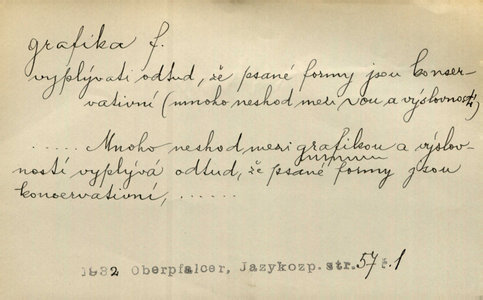 grafika f.
vyplývati odtud, že psané formy jsou konser-
vativní (mnoho neshod mezi vou a výslovností)
..... Mnoho neshod mezi grafikou a výslov-
ností vyplývá odtud, že psané formy jsou
konservativní, ......
1932 Oberpfalcer, Jazykozp. str. 57 č. 1